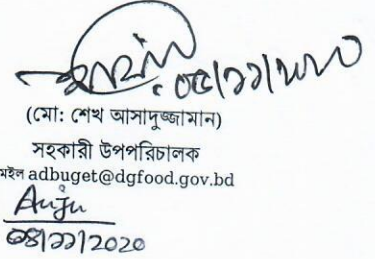 ০৫/১১/২০২০
(মো: শেখ আসাদুজ্জামান)
সহকারী উপপরিচালক
মইল adbuget@dgfood.gov.bd
Anju
০৪/১১/2020